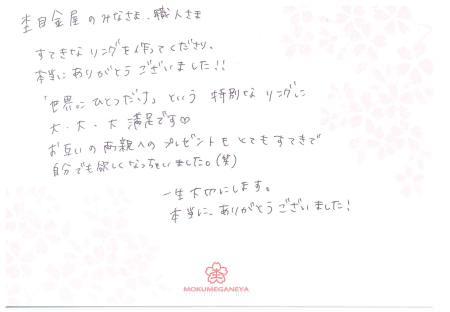 杢目金屋のみなさま、職人さま
すてきなリングを作ってくださり、
本当にありがとうございました!!
「世界にひとつだけ」という特別なリングに
大・大・大満足です♡
お互いの両親へのプレゼントもとてもすてきで
自分でも欲しくなっちゃいました。(笑)
一生大切にします。
本当に、ありがとうございました!
MOKUMEGANEYA